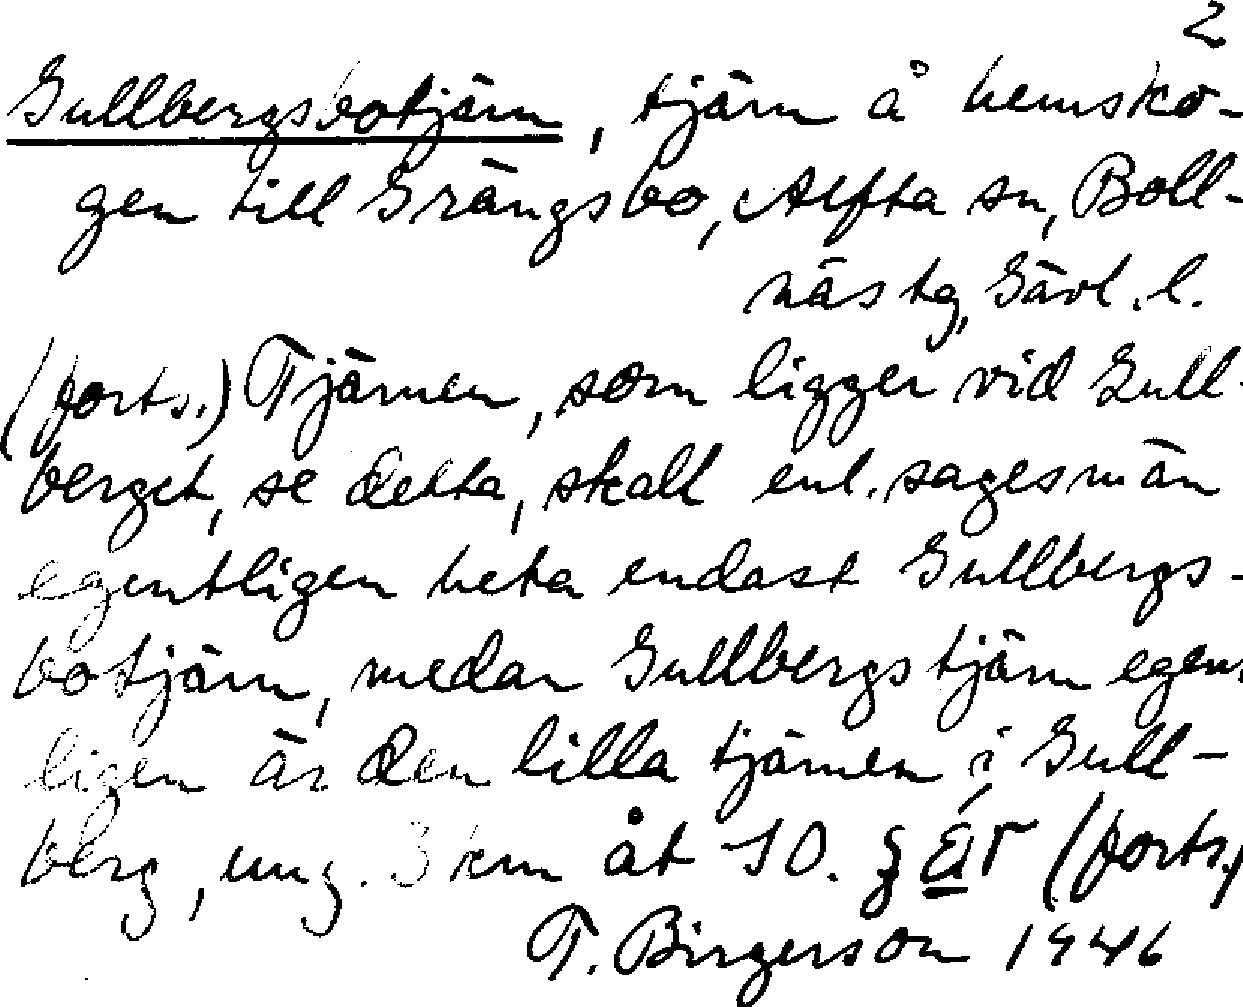 2
Gullbergsbotjärn, tjärn å hemsko-
gen till Grängsbo, Alfta sn, Boll-
näs tg, Gävl. l.
(forts.) Tjärnen, som ligger vid Gull-
berget, se detta, skall enl. sagesmän
egentligen heta endast Gullbergs-
botjärn, medan Gullbergstjärn egent
ligen är den lilla tjärnen i Gull-
berg, ung. 3 km åt SO. (forts.)
T. Birgerson 1946